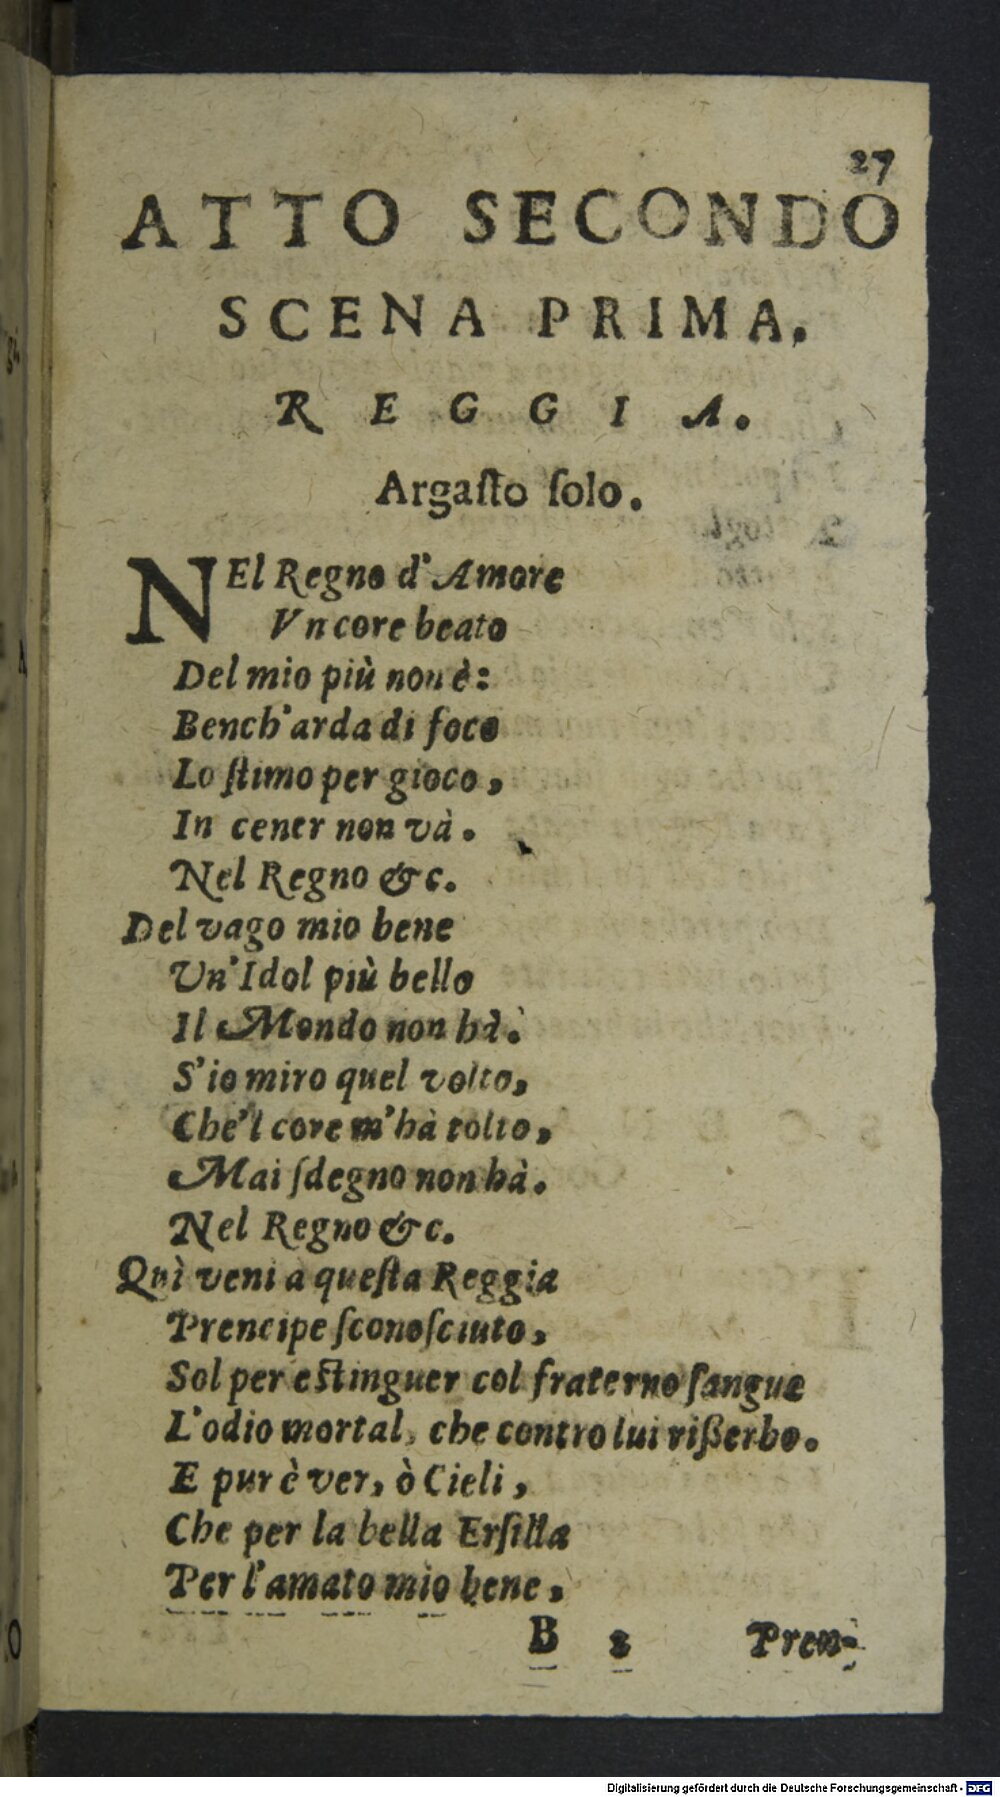 27
ATTO SECONDO
SCENA PRIMA.
REGGIA.
Argaſto ſolo.
NEl Regno d'Amore
Vn core beato
Del mio più non è:
Bench'arda di foco
Lo ſtimo per gioco,
In cener non và.
Nel Regno &c.
Del vago mio bene
Un'Idol più bello
Il Mondo non hà.
S'io miro quel volto,
Che'l core m'hà tolto,
Mai ſdegno non hà.
Nel Regno &c.
Quì veni à queſta Reggia
Prencipe ſconoſciuto,
Sol per eſtinguer col fraterno ſangue
L'odio mortal, che contro lui riſſerbo.
E pur è ver, ò Cieli,
Che per la bella Erſilla
Per l'amato mio bene,
B 2 Pren-
Digitalisierung gefördert durch die Deutsche Forschungsgemeinschaft - DFG